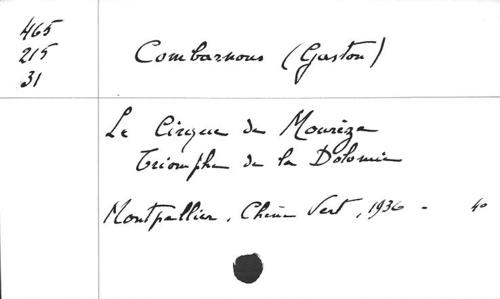 465
215
31
Combarnous (Gaston)
Le Cirque de Mourèze
Triomphe de la Dolomie
Montpellier, Chêne Vert, 1936 - 4°